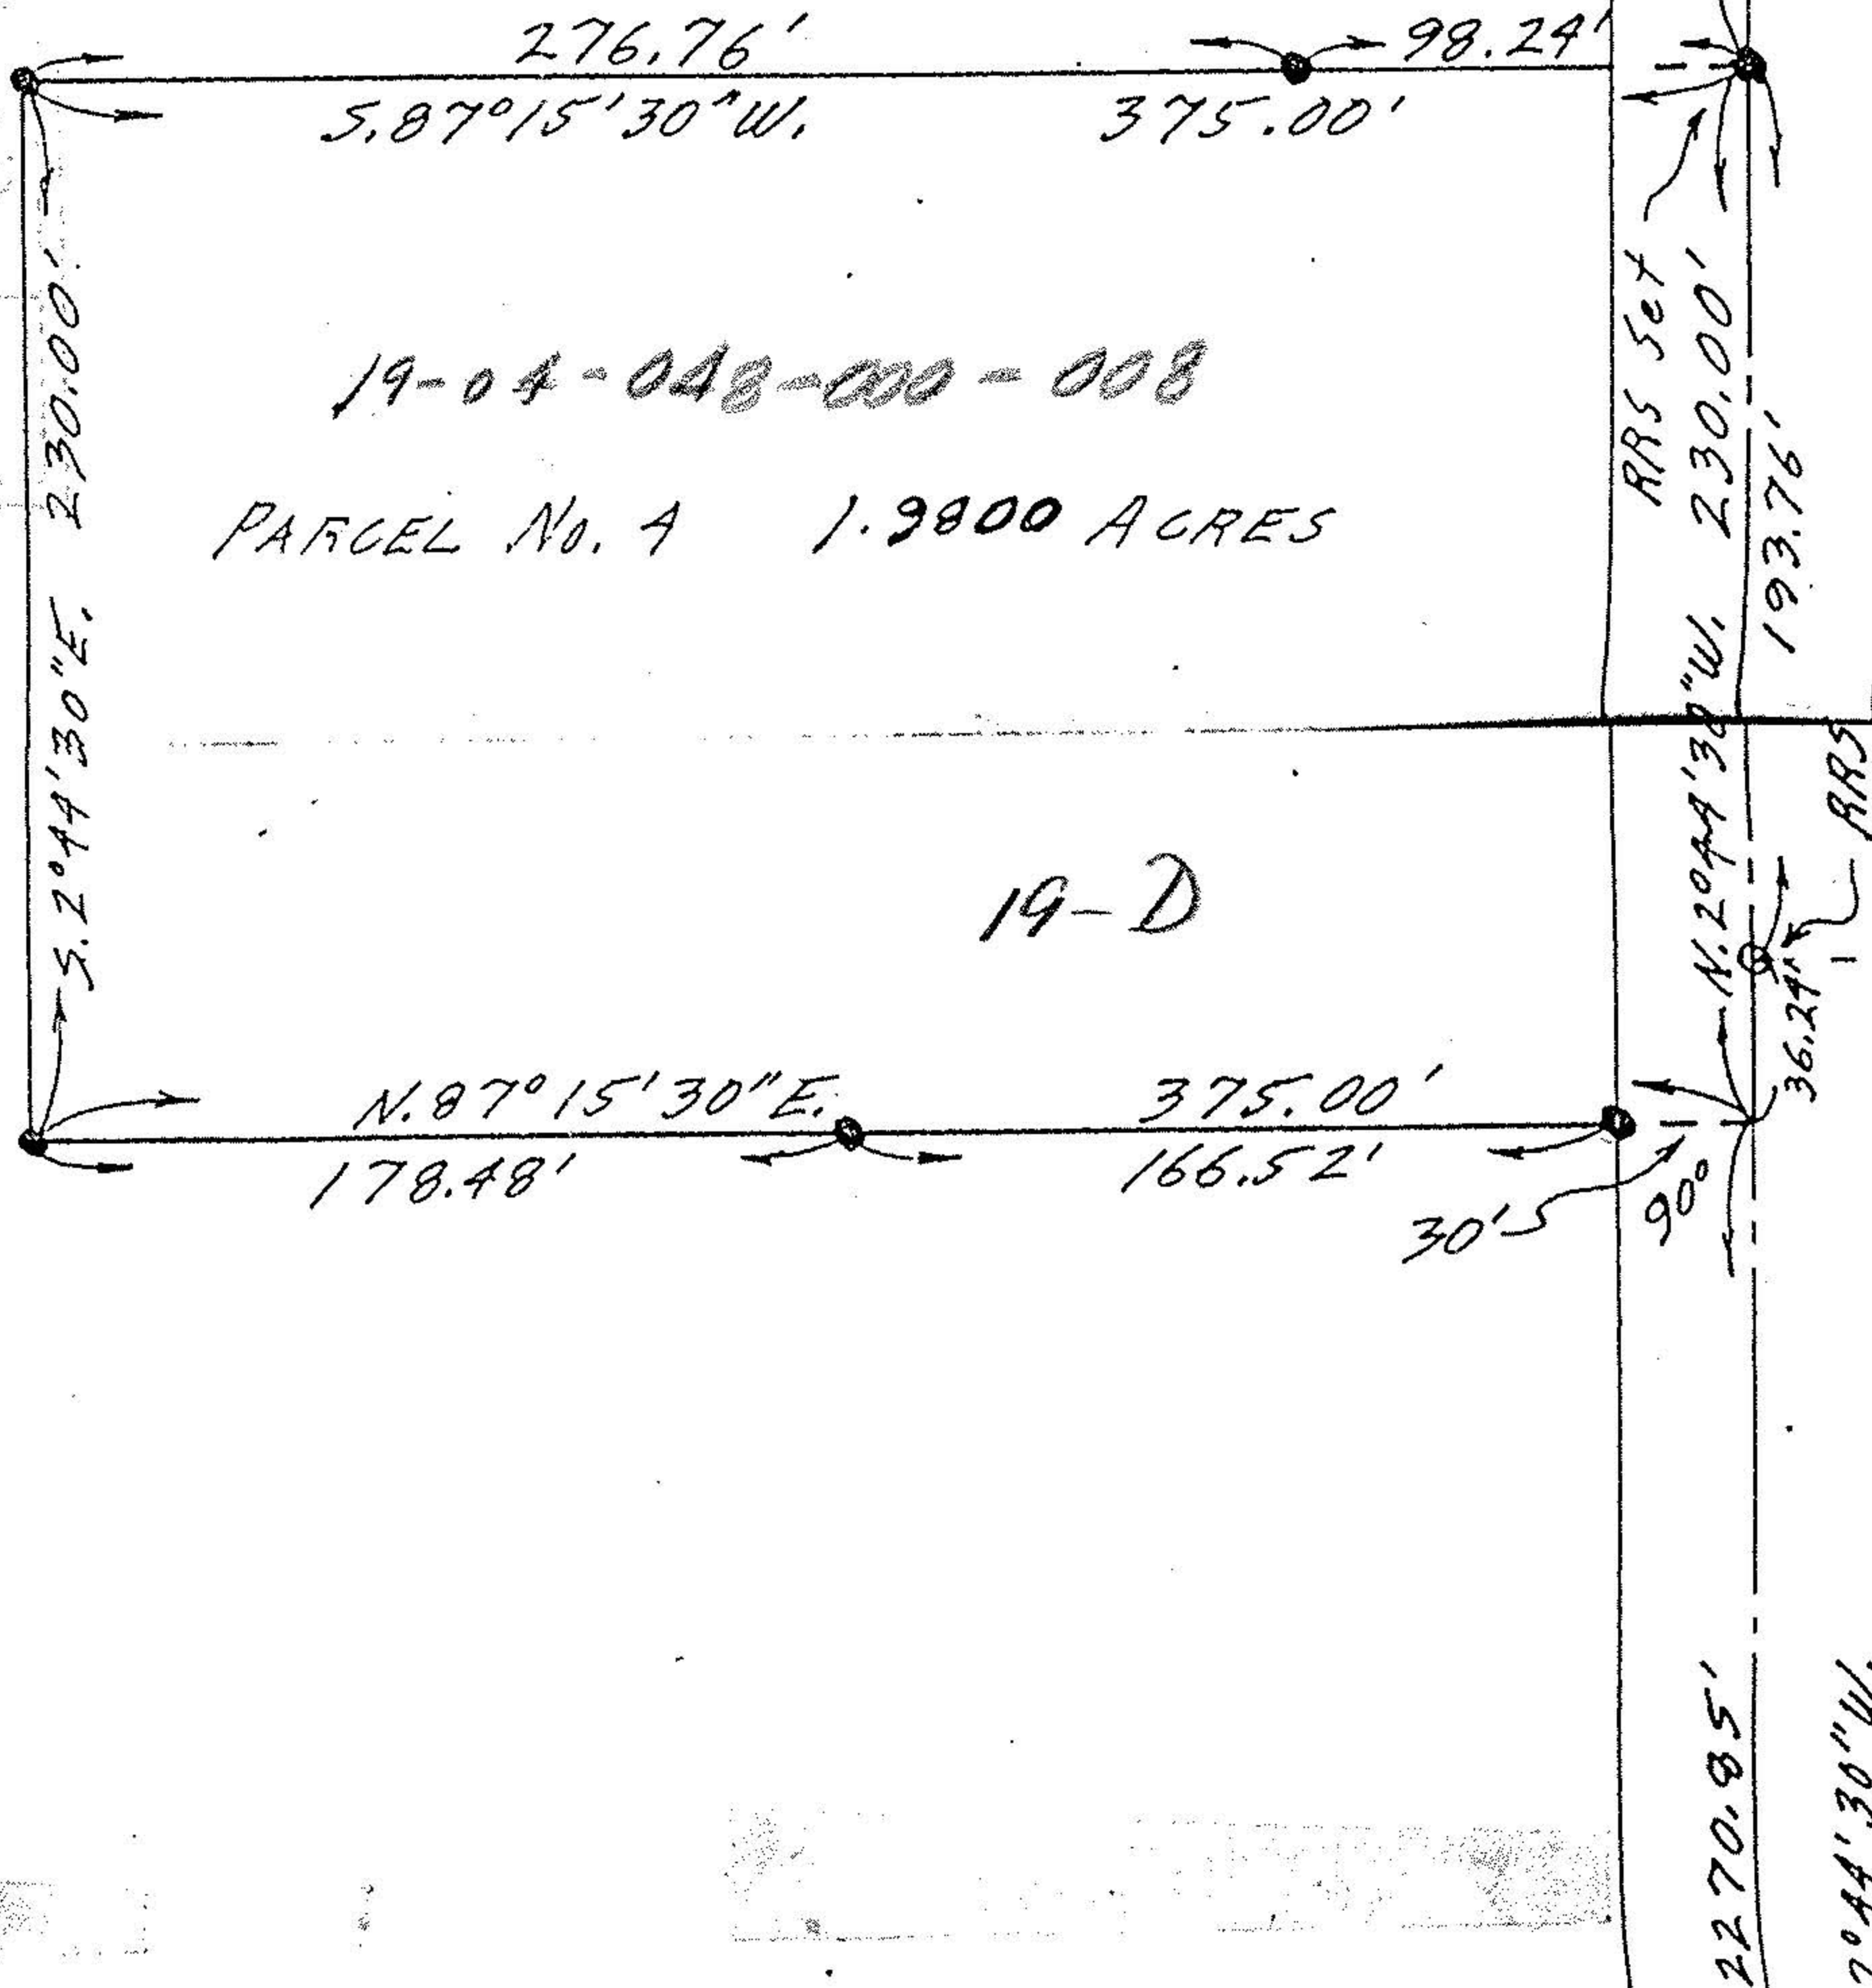 276.76' 98.24'
S.87°15'30"W. 375.00'
S.2°44'30"E. 230.00'
19-04-048-000-008
PARCEL No. 4 1.9800 ACRES
RRS Set
N.2°44'30"W. 230.00'
193.76'
RRS
36.24'
19-D
N.87°15'30"E. 375.00'
178.48' 166.52'
30'
90°
2270.85'
2°44'30"W.